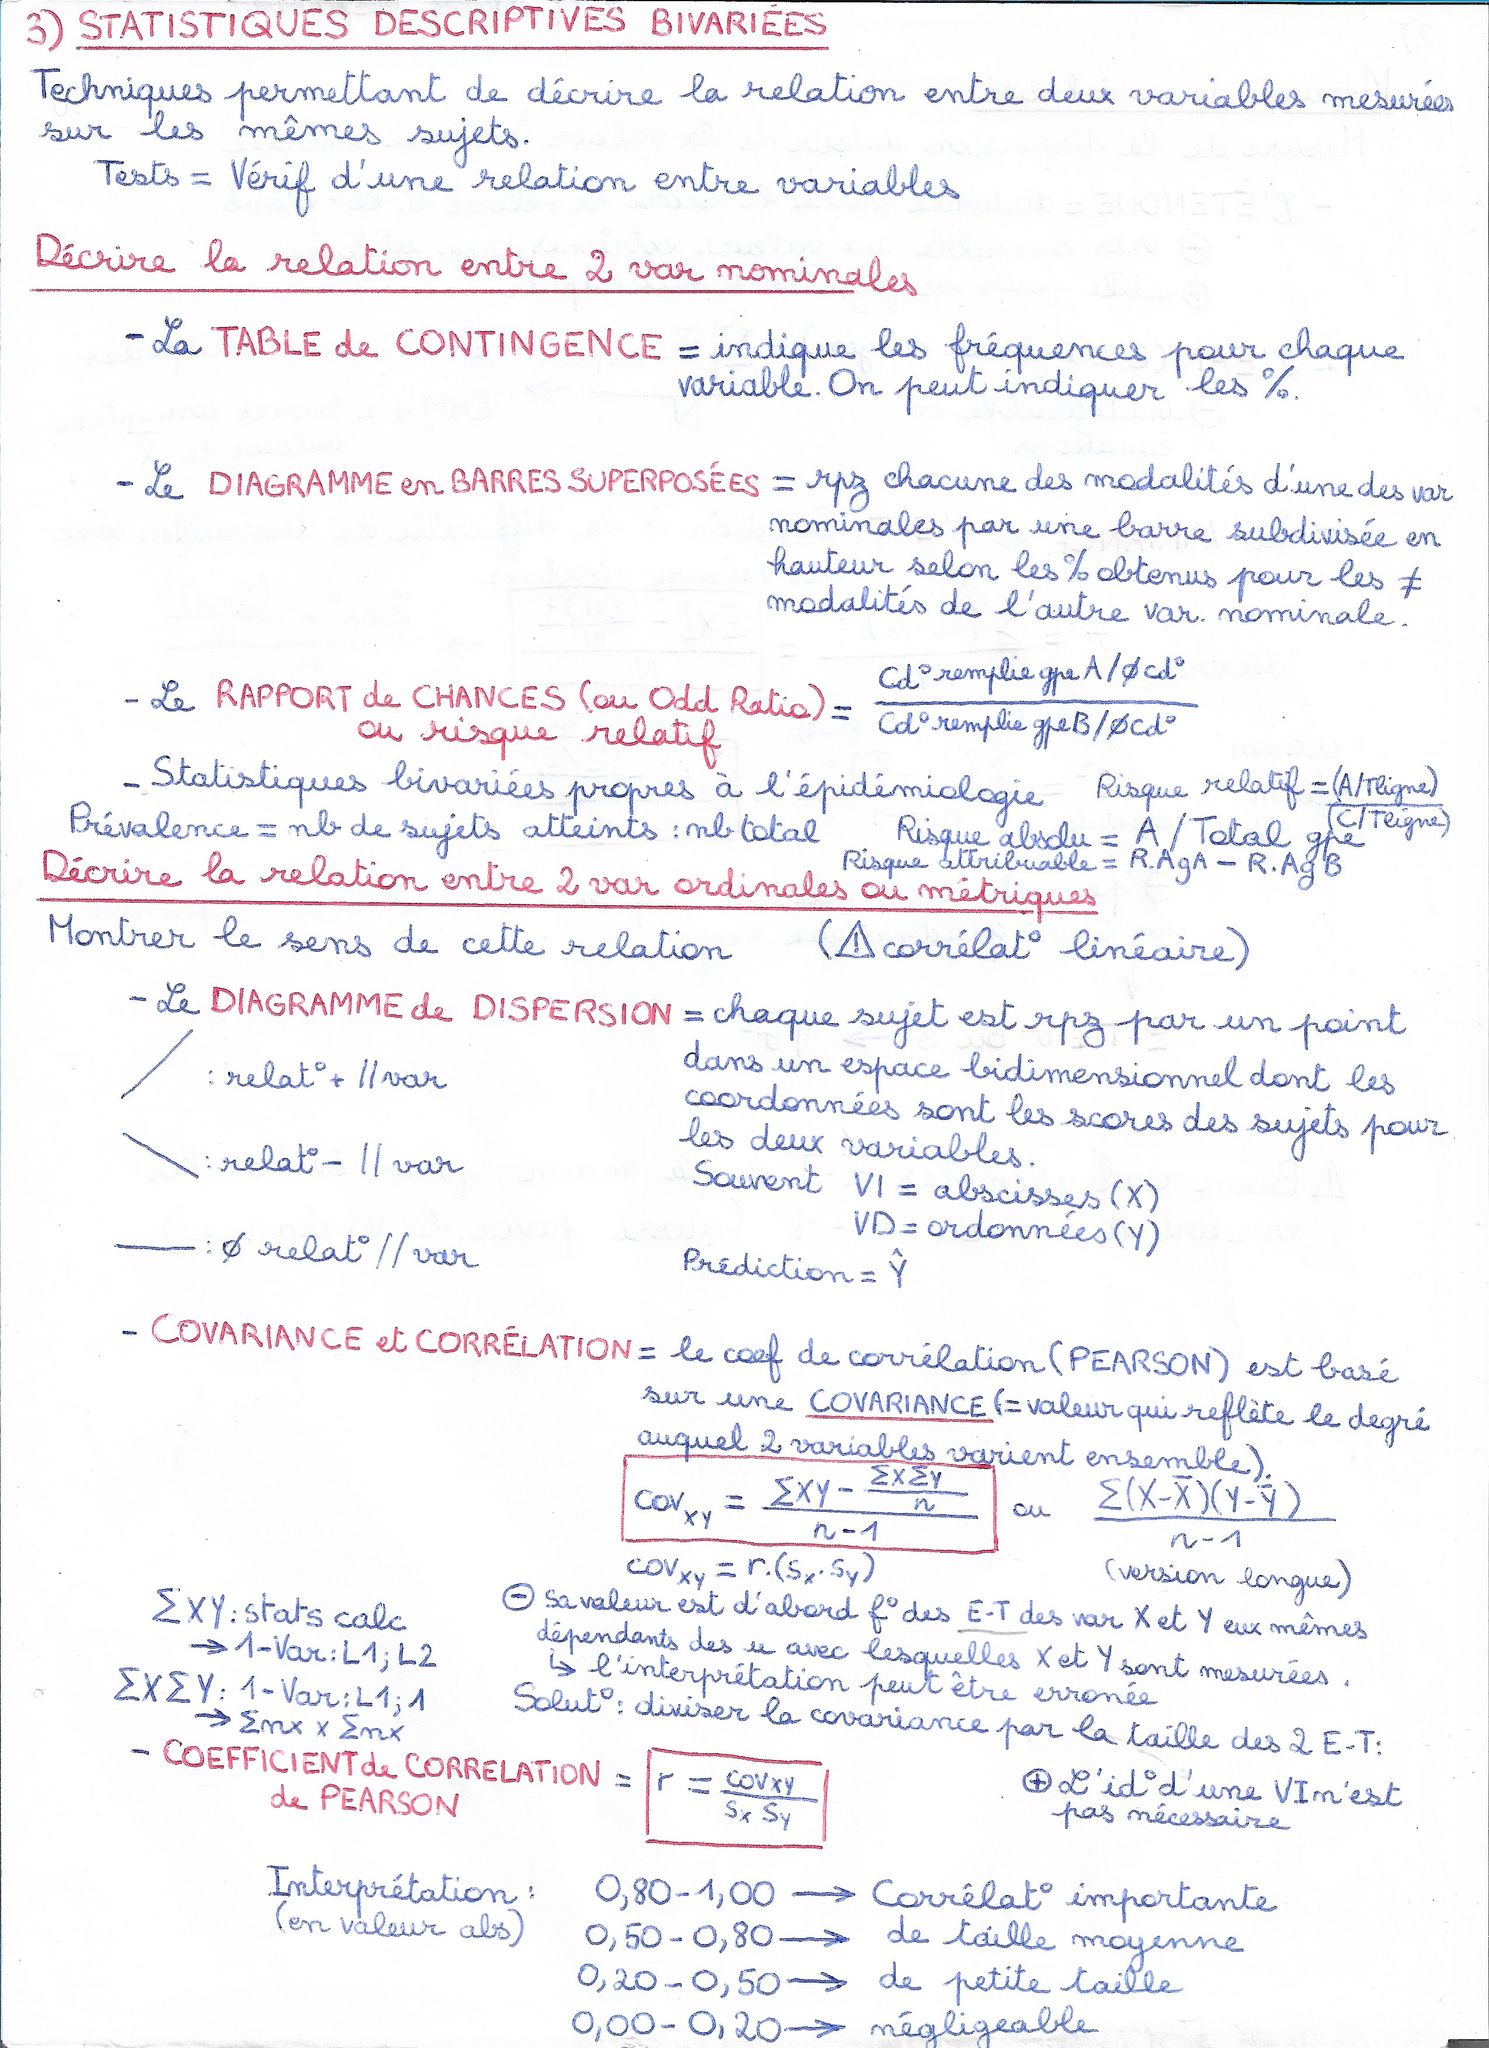 3) STATISTIQUES DESCRIPTIVES BIVARIÉES
Techniques permettant de décrire la relation entre deux variables mesurées
sur les mêmes sujets.
Tests = Vérif d'une relation entre variables
Décrire la relation entre 2 var nominales
- La TABLE de CONTINGENCE = indique les fréquences pour chaque
variable. On peut indiquer les %.
- Le DIAGRAMME en BARRES SUPERPOSÉES = rpz chacune des modalités d'une des var
nominales par une barre subdivisée en
hauteur selon les % obtenus pour les ≠
modalités de l'autre var. nominale.
- Le RAPPORT de CHANCES (ou Odd Ratio) = Cd° remplie gpe A / Ø Cd°
ou risque relatif Cd° remplie gpe B / Ø Cd°
- Statistiques bivariées propres à l'épidémiologie Risque relatif = (A/Tligne)
(C/Tligne)
Prévalence = nb de sujets atteints : nb total Risque absolu = A / Total gpe
Risque attribuable = R.AgA - R.AgB
Décrire la relation entre 2 var ordinales ou métriques
Montrer le sens de cette relation (⚠ corrélat° linéaire)
- Le DIAGRAMME de DISPERSION = chaque sujet est rpz par un point
dans un espace bidimensionnel dont les
: relat° + // var
coordonnées sont les scores des sujets pour
les deux variables.
: relat° - // var
Souvent VI = abscisses (X)
VD = ordonnées (Y)
: Ø relat° // var
Prédiction = Ŷ
- COVARIANCE et CORRÉLATION = le coef de corrélation (PEARSON) est basé
sur une COVARIANCE (= valeur qui reflète le degré
auquel 2 variables varient ensemble).
cov_XY = (ΣXY - (ΣXΣY)/n) / (n-1) ou Σ(X-X̄)(Y-Ȳ) / (n-1)
cov_XY = r.(s_X.s_Y) (version longue)
ΣXY : stats calc
→ 1-Var : L1 ; L2
ΣXΣY : 1-Var : L1 ; 1
→ Σnx x Σnx
⊖ Sa valeur est d'abord f° des E-T des var X et Y eux mêmes
dépendants des u avec lesquelles X et Y sont mesurées.
↳ l'interprétation peut être erronée
Solut° : diviser la covariance par la taille des 2 E-T :
- COEFFICIENT de CORRELATION = r = cov_XY / (s_X s_Y)
de PEARSON
⊕ L'id° d'une VI n'est
pas nécessaire
Interprétation : 0,80 - 1,00 → Corrélat° importante
(en valeur abs) 0,50 - 0,80 → de taille moyenne
0,20 - 0,50 → de petite taille
0,00 - 0,20 → négligeable